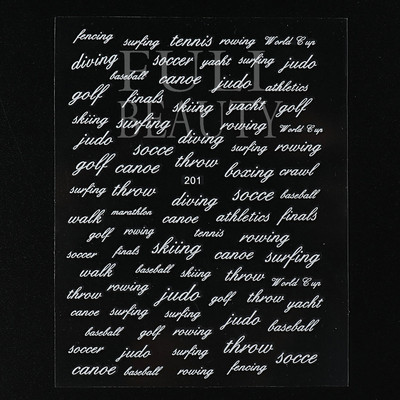 fencing surfing tennis rowing World Cup
diving soccer yacht surfing judo
FULL
baseball canoe judo athletics
golf finals skiing yacht golf
BEAUTY
skiing surfing rowing World Cup
judo socce diving surfing rowing
golf canoe throw boxing crawl
201
surfing throw diving socce baseball
walk marathlon canoe athletics finals
golf rowing tennis rowing
soccer finals skiing canoe surfing
walk baseball skiing throw World Cup
throw rowing judo golf throw yacht
canoe surfing surfing judo baseball
baseball golf rowing
soccer judo surfing throw socce
canoe baseball rowing fencing